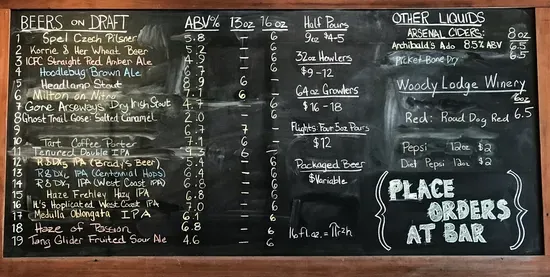 BEERS ON DRAFT ABV% 13oz 16oz
1 Spel Czech Pilsner 5.8 — 6
2 Korrie & Her Wheat Beer 5.2 — 6
3 ICFC Straight Red Amber Ale 4.9 — 6
4 Hoodlebug Brown Ale 6.7
5 Headlamp Stout
6 Milton on Nitro 9.1 6
7 Gone Arseways Dry Irish Stout 4.7 — 6
8 Ghost Trail Gose: Salted Caramel 2.0 —
9 6.7 7 —
10 Tart Coffee Porter
11 Tenured Double IPA
12 R&D IPA (Brady's Beer) 5.4 — 6
13 IPA (Centennial Hops) 6.4 — 6
14 IPA (West Coast IPA) 6.8 — 6
15 Haze Frehley Hazy IPA 6.8 — 6
16 It's Hoplicated West Coast IPA 7.0 — 6
17 Medulla Oblongata IPA 6.1 — 6
18 Haze of Passion 6.8 — 6
19 Tang Glider Fruited Sour Ale 4.6 — 6
Half Pours
9oz $4-5
32oz Howlers
$9-12
64oz Growlers
$16-18
Flights-Four 5oz Pours
$12
Packaged Beer
$Variable
16fl.oz.=πr²h
OTHER LIQUIDS
ARSENAL CIDERS: 8oz
Archibald's Ado 8.5% ABV 6.5
Picket Bone Dry 6.5
Woody Lodge Winery
6oz
Red: Road Dog Red 6.5
Pepsi 12oz $2
Diet Pepsi 12oz $2
PLACE
ORDERS
AT BAR